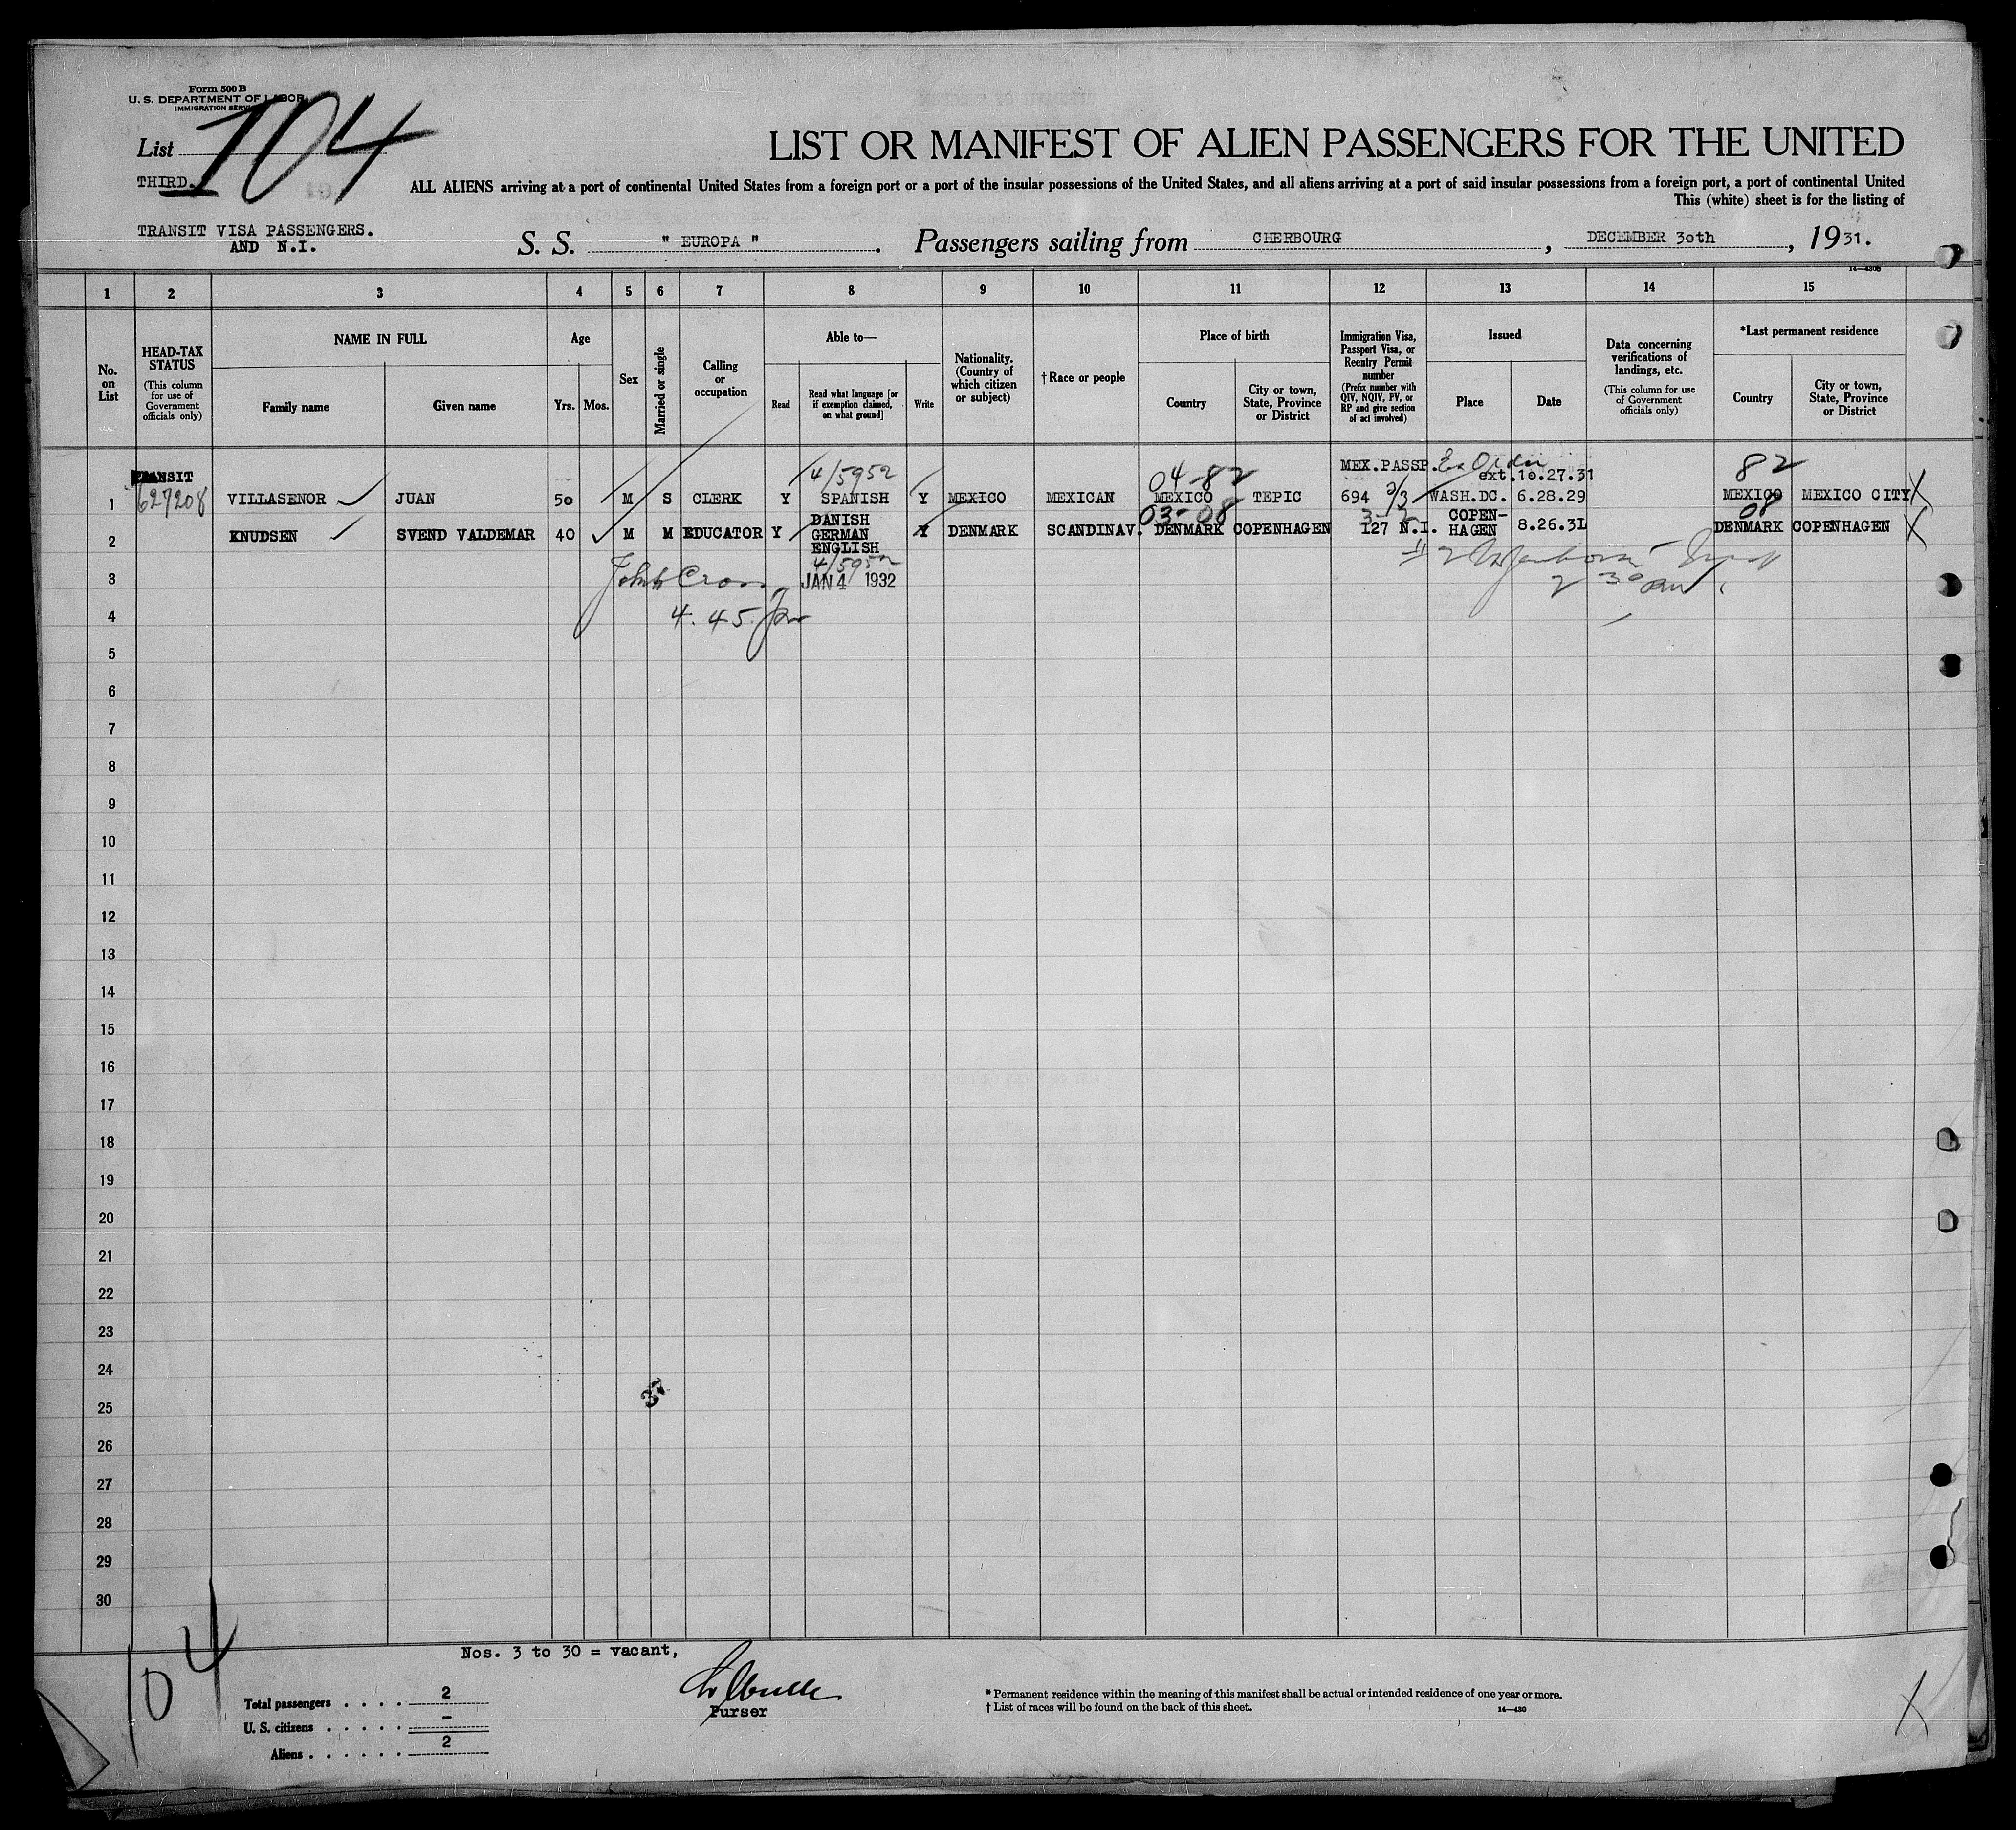 Form 500 B
U. S. DEPARTMENT OF LABOR
IMMIGRATION SERVICE
List 104
THIRD.
LIST OR MANIFEST OF ALIEN PASSENGERS FOR THE UNITED
ALL ALIENS arriving at a port of continental United States from a foreign port or a port of the insular possessions of the United States, and all aliens arriving at a port of said insular possessions from a foreign port, a port of continental United
This (white) sheet is for the listing of
TRANSIT VISA PASSENGERS.
AND N.I.
S. S. " EUROPA " . Passengers sailing from CHERBOURG , DECEMBER 30th , 1931.
14—430B
1 2 3 4 5 6 7 8 9 10 11 12 13 14 15
No. on List
HEAD-TAX STATUS
(This column for use of Government officials only)
NAME IN FULL
Family name
Given name
Age
Yrs. Mos.
Sex
Married or single
Calling or occupation
Able to—
Read
Read what language [or if exemption claimed, on what ground]
Write
Nationality. (Country of which citizen or subject)
† Race or people
Place of birth
Country
City or town, State, Province or District
Immigration Visa, Passport Visa, or Reentry Permit number
(Prefix number with QIV, NQIV, PV, or RP and give section of act involved)
Issued
Place
Date
Data concerning verifications of landings, etc.
(This column for use of Government officials only)
*Last permanent residence
Country
City or town, State, Province or District
TRANSIT 4/5952 04-82 MEX.PASSP. ext.10.27.31 82
1 627208 VILLASENOR JUAN 50 M S CLERK Y SPANISH Y MEXICO MEXICAN MEXICO TEPIC 694 3/3 WASH.DC. 6.28.29 MEXICO MEXICO CITY X
03-08 3-2 08
2 KNUDSEN SVEND VALDEMAR 40 M M EDUCATOR Y DANISH GERMAN ENGLISH Y DENMARK SCANDINAV. DENMARK COPENHAGEN 127 N.I. COPEN-HAGEN 8.26.31 DENMARK COPENHAGEN X
4/5952
3 John Cross JAN 4 1932
2 30 PM
4 4.45 pm
5
6
7
8
9
10
11
12
13
14
15
16
17
18
19
20
21
22
23
24
37
25
26
27
28
29
30
104
Nos. 3 to 30 = vacant,
Total passengers . . . . 2
U. S. citizens . . . . . –
Aliens . . . . . . 2
Purser
* Permanent residence within the meaning of this manifest shall be actual or intended residence of one year or more.
† List of races will be found on the back of this sheet.
14—430
X